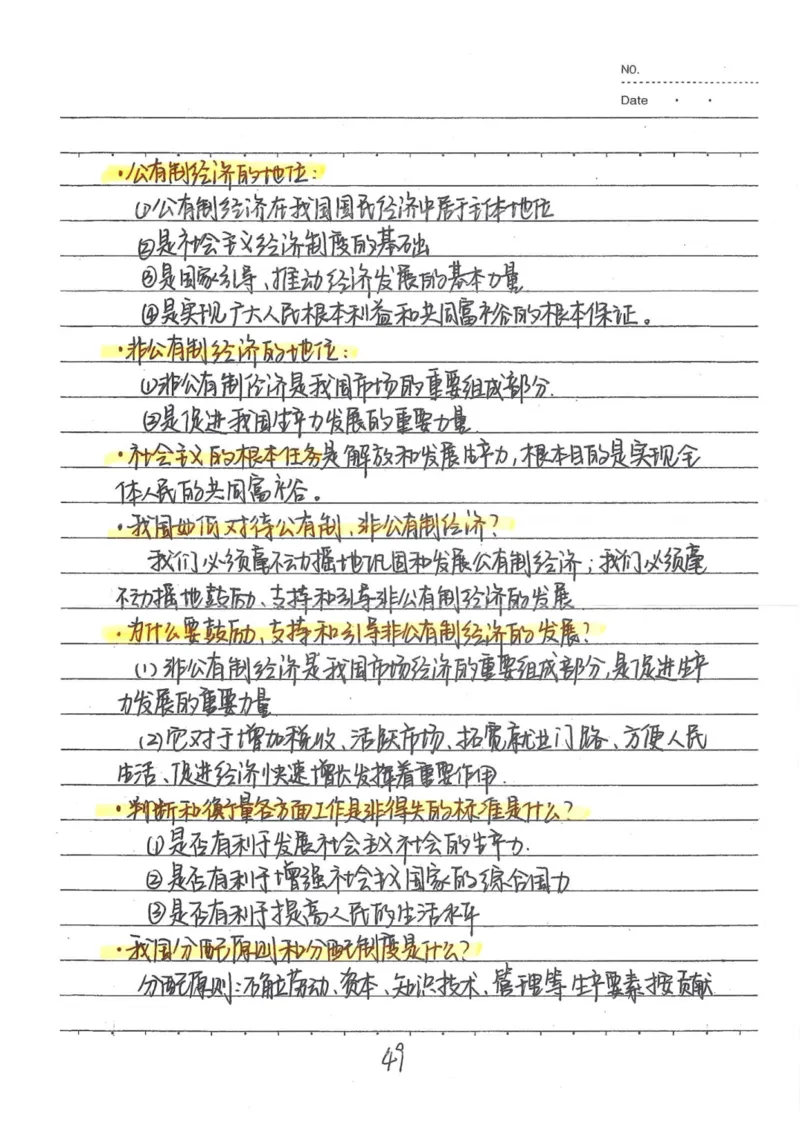 NO.
Date
·公有制经济的地位：
①公有制经济在我国国民经济中居于主体地位
②是社会主义经济制度的基础
③是国家引导、推动经济发展的基本力量
④是实现广大人民根本利益和共同富裕的根本保证。
·非公有制经济的地位：
①非公有制经济是我国市场的重要组成部分.
②是促进我国生产力发展的重要力量
·社会主义的根本任务是解放和发展生产力，根本目的是实现全
体人民的共同富裕。
·我国如何对待公有制、非公有制经济？
我们必须毫不动摇地巩固和发展公有制经济；我们必须毫
不动摇地鼓励、支持和引导非公有制经济的发展
·为什么要鼓励、支持和引导非公有制经济的发展？
(1)非公有制经济是我国市场经济的重要组成部分，是促进生产
力发展的重要力量
(2)它对于增加税收、活跃市场、拓宽就业门路、方便人民
生活、促进经济快速增长发挥着重要作用.
·判断和衡量各方面工作是非得失的标准是什么？
①是否有利于发展社会主义社会的生产力.
②是否有利于增强社会主义国家的综合国力
③是否有利于提高人民的生活水平
·我国分配原则和分配制度是什么？
分配原则：确立劳动、资本、知识技术、管理等生产要素按贡献
49